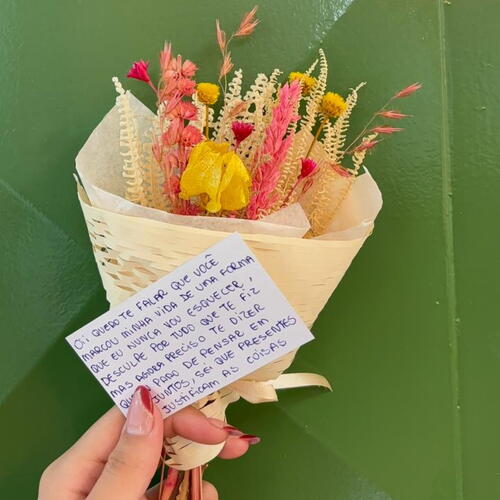 Oi quero te falar que você
marcou minha vida de uma forma
que eu nunca vou esquecer,
desculpe por tudo que te fiz
mas agora preciso te dizer
paro de pensar em
juntos, sei que presentes
justificam as coisas